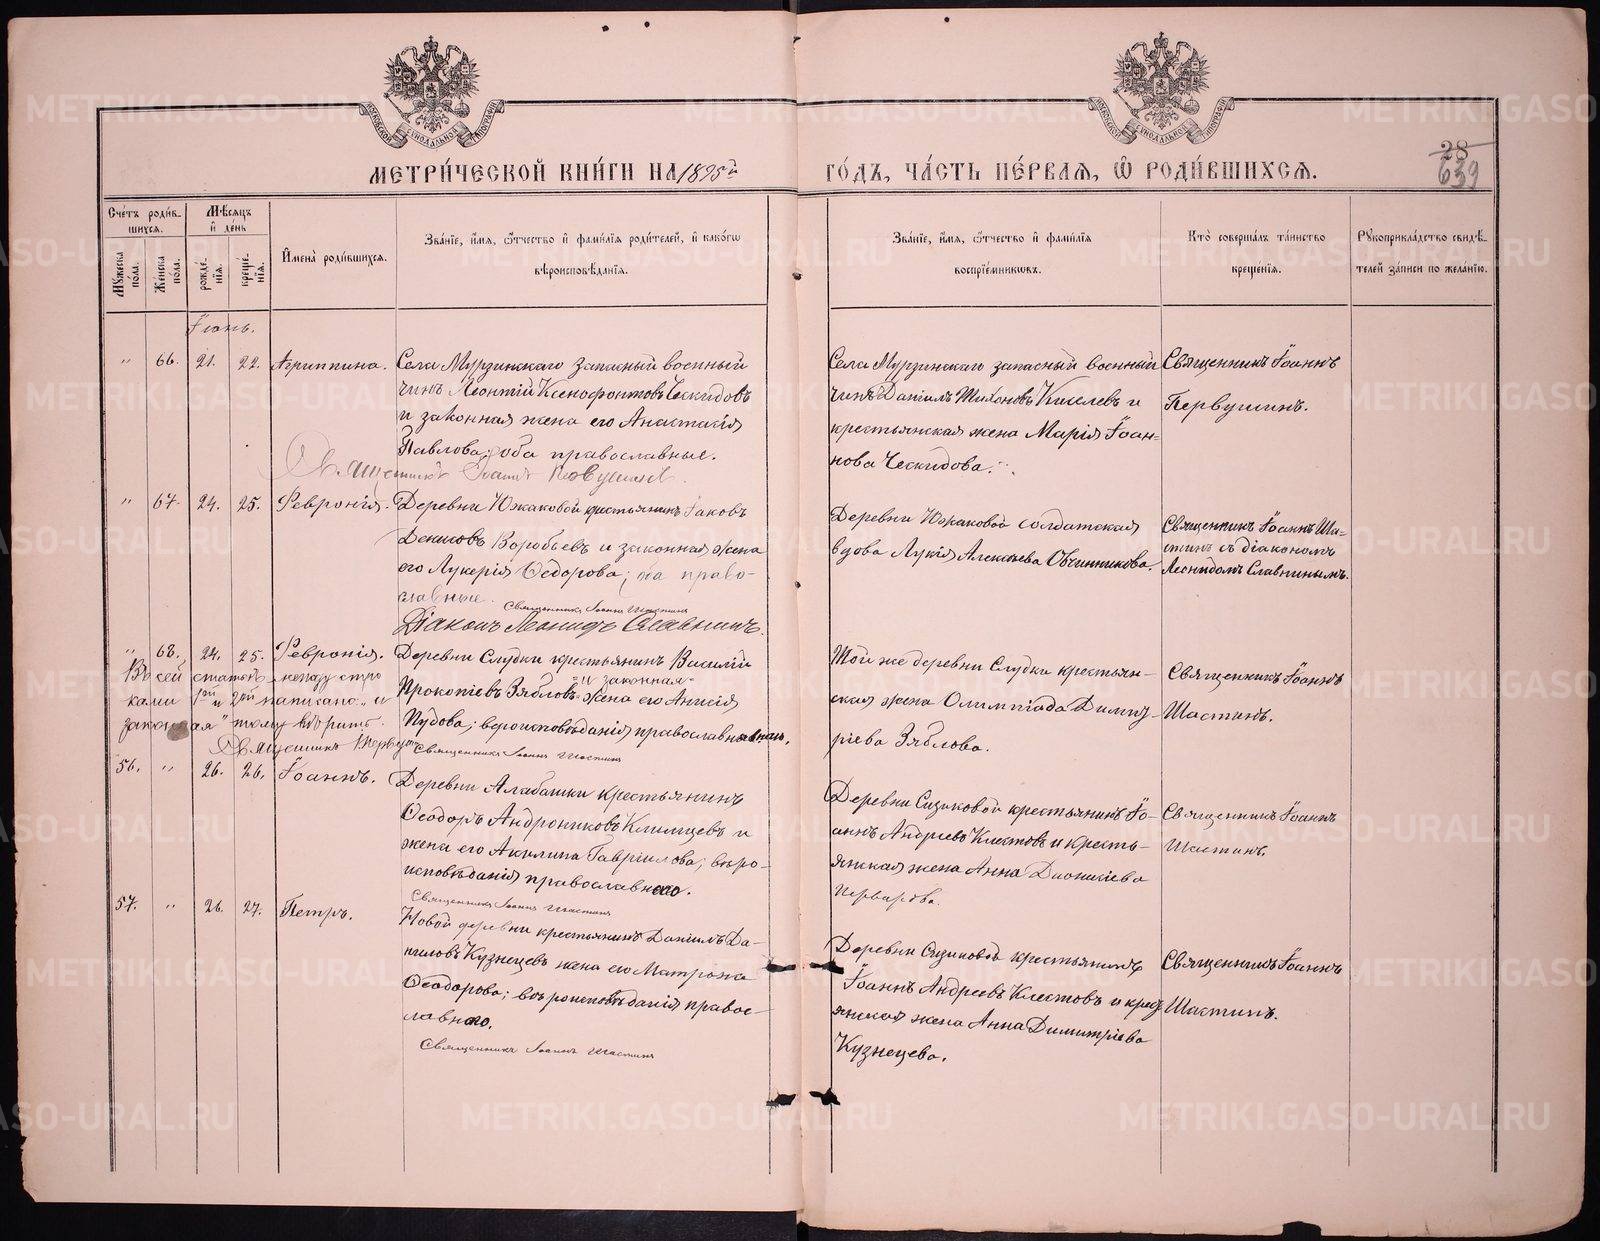 МЕТРИ́ЧЕСКОЙ КНИ́ГИ НА 1895й
ГО́ДЪ, ЧА́СТЬ ПЕ́РВАЯ, Ѡ РОДИ́ВШИХСЯ.
28
639
Сче́тъ роди́в-
шихся.
Мѣ́сяцъ
и де́нь
Мꙋжеска по́ла.
Же́нска по́ла.
рожде́-
нїя.
креще́-
нїя.
И҆мена̀ роди́вшихся.
Зва́нїе, и҆́мя, ѻ҆́тчество и҆ фами́лїя роди́телей, и҆ како́гѡ
вѣроисповѣ́данїя.
Зва́нїе, и҆́мя, ѻ҆́тчество и҆ фами́лїя
воспрїе́мникѡвъ.
Кто̀ соверша́лъ та́инство
креще́нїя.
Рꙋкоприкла́дство свидѣ́-
телей за́писи по жела́нїю.
Іюнь.
" 66. 21. 22. Агриппина.
Села Мурзинскаго запасный военный
чинъ Леонтій Ксенофонтовъ Ческидовъ
и законная жена его Анастасія
Павлова; оба православные.
Священникъ Іоаннъ Первушинъ.
Села Мурзинскаго запасный военный
чинъ Даніилъ Тихоновъ Киселевъ и
крестьянская жена Марія Іоан-
нова Ческидова.
Священникъ Іоаннъ
Первушинъ.
" 67. 24. 25. Февронія.
Деревни Южаковой крестьянинъ Іаковъ
Денисовъ Воробьевъ и законная жена
его Лукерія Ѳедорова; оба право-
славные.
Священникъ Іоаннъ Шастинъ
Діаконъ Леонидъ Славнинъ.
Деревни Южаковой солдатская
вдова Лукія Алексѣева Овчинникова.
Священникъ Іоаннъ Ша-
стинъ съ діакономъ
Леонидомъ Славнинымъ.
" 68. 24. 25. Февронія.
Деревни Слудки крестьянинъ Василій
"и законная"
Прокопіевъ Зябловъ жена его Анисія
Пудова; вероисповѣданія православнаго.
Священникъ Іоаннъ Шастинъ
Въ сей статьѣ между стро
ками 1й и 2й написано: „и
законная" тому вѣрить.
Священникъ Первушинъ
Той же деревни Слудки крестьян-
ская жена Олимпіада Димит-
ріева Зяблова.
Священникъ Іоаннъ
Шастинъ.
56. " 26. 26. Іоаннъ.
Деревни Алабашки крестьянинъ
Ѳеодоръ Андрониковъ Клищевъ и
жена его Акилина Гавріилова; веро-
исповѣданія православнаго.
Священникъ Іоаннъ Шастинъ
Деревни Сизиковой крестьянинъ Іо-
аннъ Андреевъ Клестовъ и кресть-
янская жена Анна Діонисіева
Священникъ Іоаннъ
Шастинъ.
57. " 26. 27. Петръ.
Новой деревни крестьянинъ Даніилъ Да-
ниловъ Кузнецевъ жена его Матрона
Ѳеодорова; вероисповѣданія правос-
лавнаго.
Священникъ Іоаннъ Шастинъ
Деревни Сизиковой крестьянинъ
Іоаннъ Андреевъ Клестовъ и крест
янская жена Анна Димитріева
Кузнецева.
Священникъ Іоаннъ
Шастинъ.
METRIKI.GASO-URAL.RU